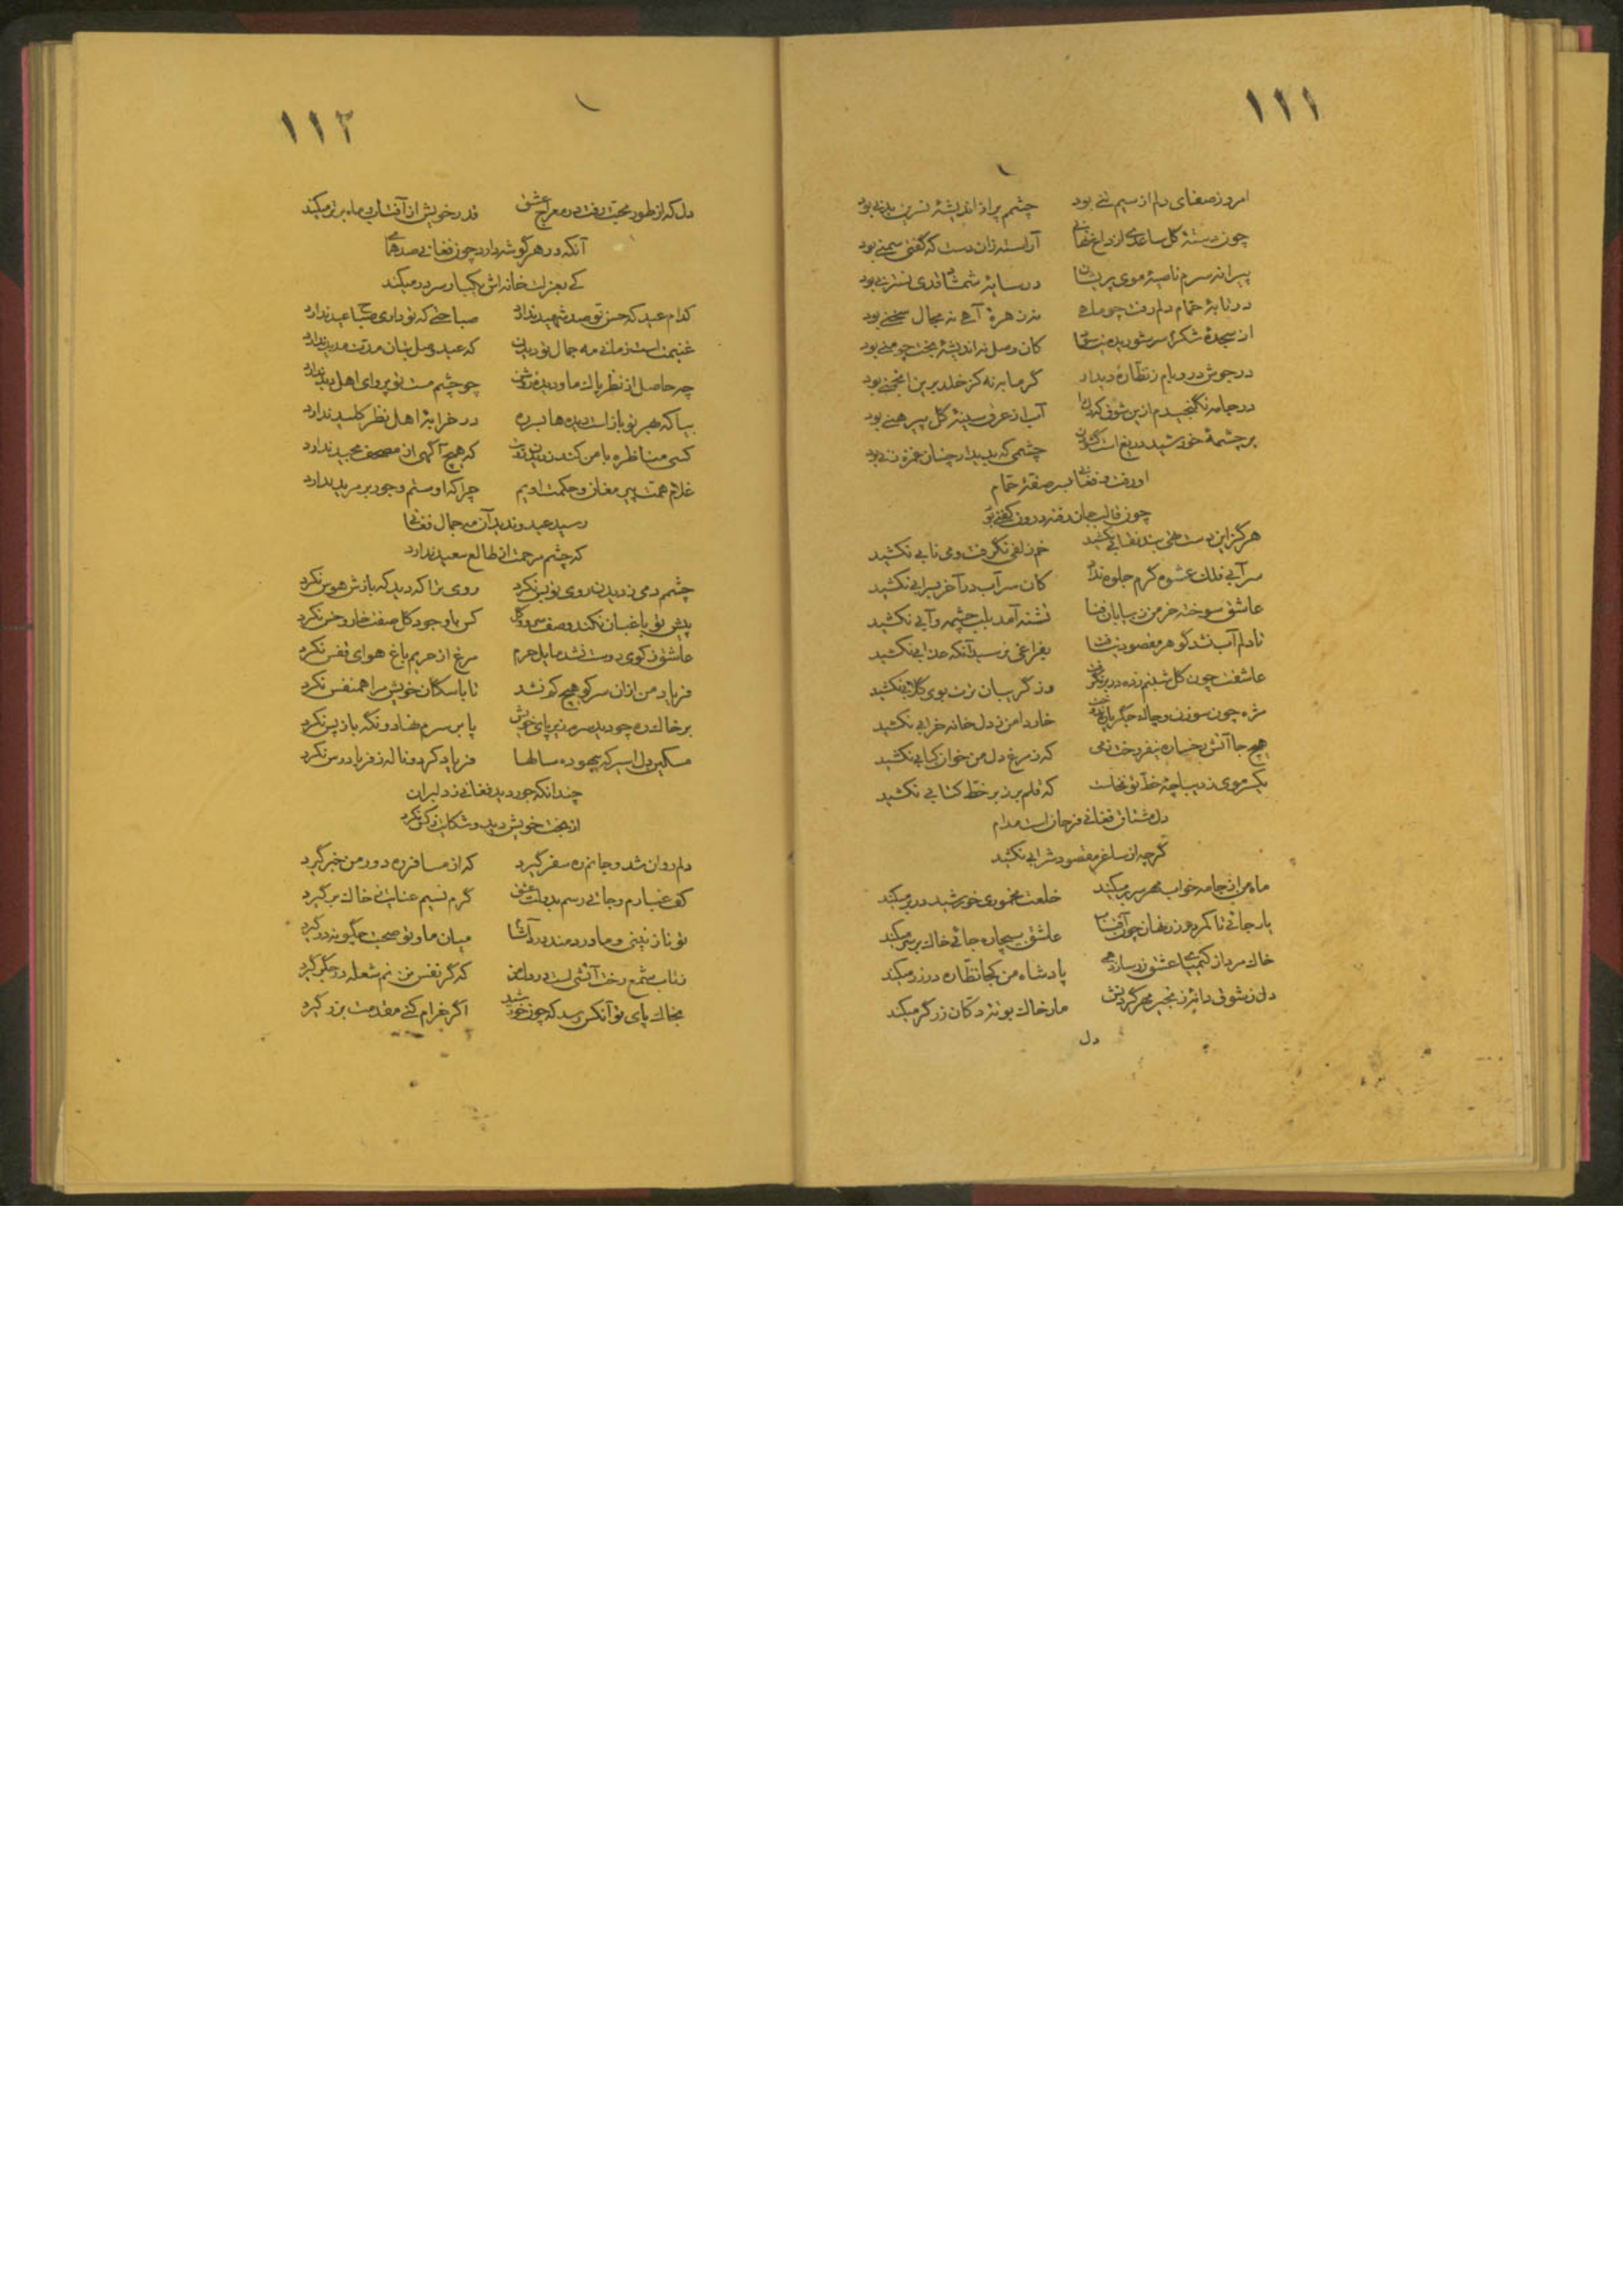 ١١١
امروز صفای دلم از سیم تنی بود چشمم پر از اندیشهٔ نسرین بدنی بود
چون دستهٔ گل ساعدی از داغ نهانی آراسته زان دست که گفتی سمنی بود
پیرانه سرم ناصیهٔ موی پریشان در سایهٔ شمشاد قدی نسترنی بود
در تابهٔ حمام دلم رفت چو ماهی نه زهرهٔ آهی نه مجال سخنی بود
از سجدهٔ شکر سر شوریده کان وصل نه اندیشهٔ بخت چو منی بود
در جوش در و بام ز نظارهٔ دیدار گرمابه نه کز خلد برین انجمنی بود
در جامه نگنجیدم ازین شوق که او را آب از عرق سینهٔ گل پیرهنی بود
بر چشمهٔ خورشید دریغ است گشودن چشمی که به دیدار چنان غمزه زنی بود
او رفت و فغانی به سر صفهٔ حمام
چون قالب جان رفته درون کفنی بود
هرگز این دست تهی بند نقابی نکشید خم زلفی نگرفت و می نابی نکشید
سرابی فلک عشوه گرم جلوه نداد کان سراب در آخر بسرابی نکشید
عاشق سوخته خرمن ز بیابان فنا تشنه آمد بلب چشمه و آبی نکشید
تا دلم آب نشد گوهر مقصود نیافت بفراغی نرسید آنکه عذابی نکشید
عاشقت چون گل شبنم زده در بر نگرفت وز گریبان ترت بوی گلابی نکشید
مژه چون سوزن و چاک جگر خار دامن ز دل خانه خرابی نکشید
هیچ جا آتش رخساره نیفروخت دمی که ز مرغ دل من خوان کبابی نکشید
یکسر موی ز دیباچهٔ خط تو نکاست که قلم بر زبر خط کتابی نکشید
دل مشتاق فغانی فرحان است مدام
گرچه از ساغر مقصود شرابی نکشید
ماه من از جامه خواب مهر سر بر میکند خلعت مخموری خورشید در بر میکند
یار جائی تا کمر در زر نهان چون آفتاب عاشق بیچاره جائی خاک بر سر میکند
خاک مرد از کیمیای عشق زر سازد همی پادشاه من کجا نظاره در زر میکند
دل ز شوق دانهٔ زنجیر مهر گردنش مار خاک بوتهٔ دکان زرگر میکند
دل
١١٢
دل که از طور محبت رفت در معراج عشق قدر خویش از آفتاب و ماه برتر میکند
آنکه در هر گوشه دارد چون فغانی صد همای
کی بعزلت خانه اش یکبار سر در میکند
کدام عید که حسن تو صد شهید ندارد صباحتی که تو داری صباح عید ندارد
غنیمت است زمانی مه جمال تو دیدن که عید وصل بتان مدت مدید ندارد
چه حاصل از نظر پاک ما و دیدهٔ روشن چو چشم مست تو پروای اهل دید ندارد
بیا که مهر تو باز است دیده ها بسره در خزاین اهل نظر کلید ندارد
کسی مناظره با من کند ز که هیچ آگهی از مصحف مجید ندارد
غلام همت پیر مغان و حکمت اویم چرا که او ستم و جور بر مرید ندارد
رسید عید و ندید آن مه جمال فغانی
که چشم مرحمت از طالع سعید ندارد
چشمم دمی ز دیدن روی تو بس نکرد روی ترا که دید که بازش هوس نکرد
پیش تو باغبان نکند وصف سرو و گل کس با وجود گل صفت خار و خس نکرد
عاشق ز کوی دوست نشد مایل حرم مرغ از حریم باغ هوای قفس نکرد
فریاد من ازان سر کو هیچ کم نشد تا با سگان خویش مرا همنفس نکرد
بر خاک ره چو دید سرم زیر پای خویش پا بر سرم نهاد و نگه باز پس نکرد
مسکین دل اسیر که بیهوده سالها فریاد کرد و ناله ز فریادرس نکرد
چندانکه جور دید فغانی ز دلبران
از بخت خویش دید و شکایت ز کس نکرد
دلم روان شد و جانم ره سفر گیرد که از مسافر ره دور من خبر گیرد
کف غبارم و جائی رسم بدولت عشق گرم نسیم عنایت ز خاک برگیرد
تو نازنینی و ما دردمند میان ما و تو صحبت چگونه در گیرد
ز تاب شمع رخت آتشی است در دل من که گر نفس بزنم شعله در جگر گیرد
بخاک پای تو آنکس رسد که چون خورشید اگر خرام کنی مقدمت بزر گیرد